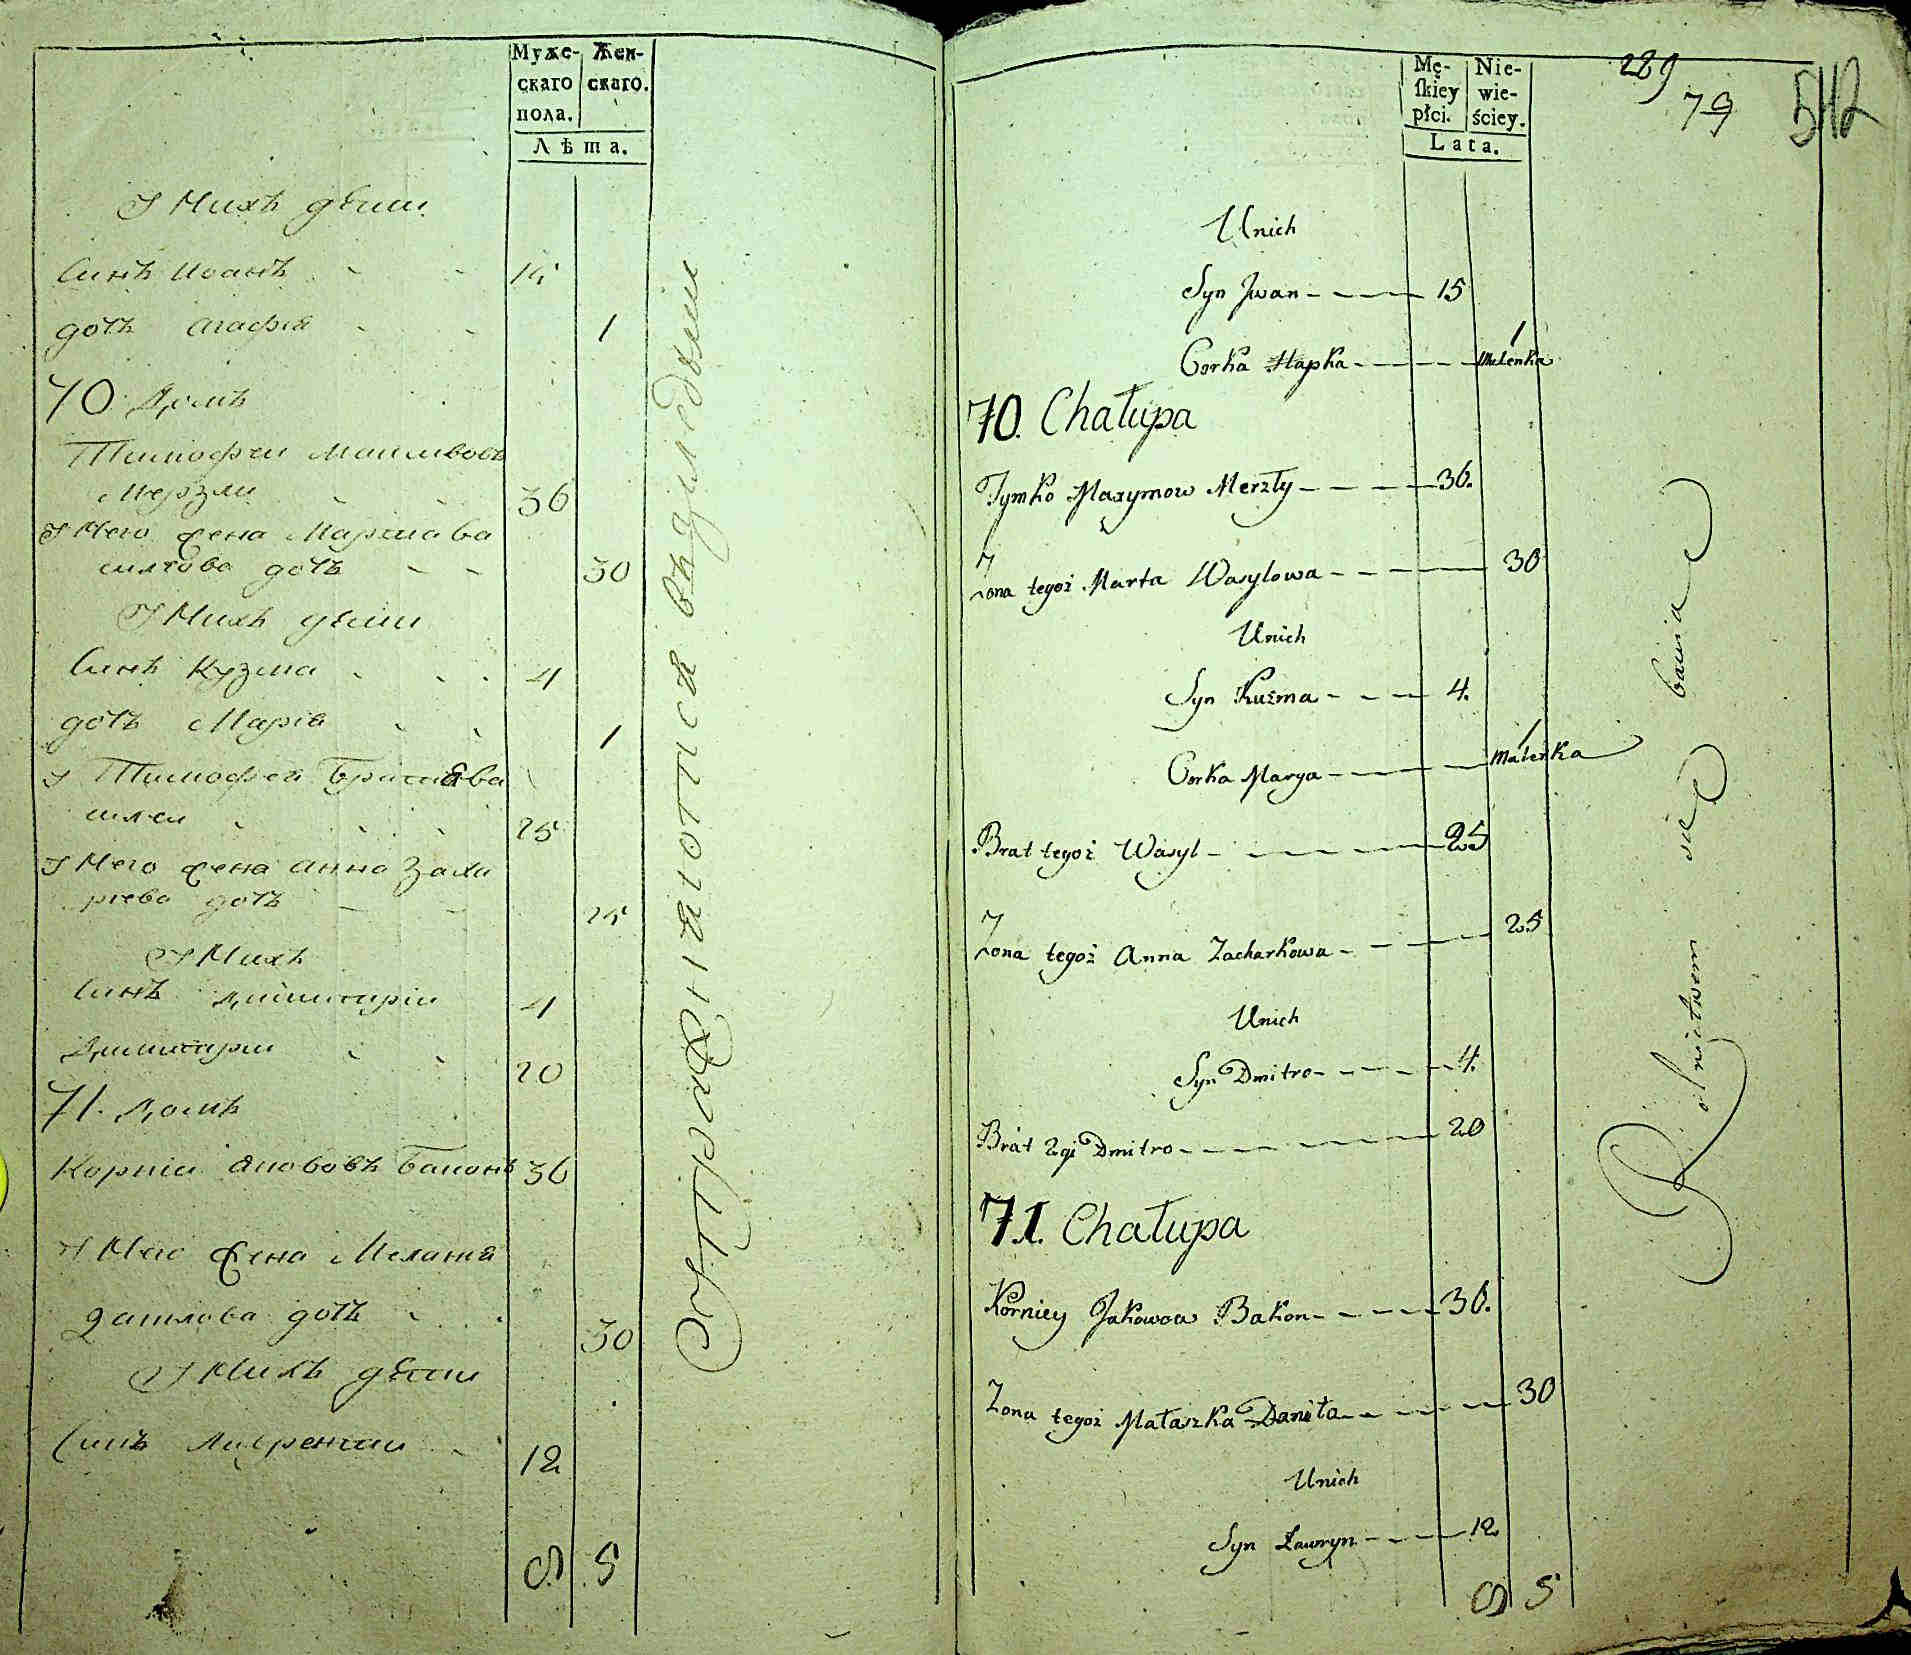 Муже-
скаго
пола.
Жен-
скаго.
Лѣта.
У Нихъ дѣти
Синъ Иоанъ 15
дотъ Агафія 1
70 Домъ
Тимофеи
Мерзли 36
У Него Жена Марта Ва
силѣва дотъ 30
У Нихъ дѣти
Синъ Кузма 4
дотъ Марія 1
У Тимофея Братъ Ва
силеи 25
У Него Жена Анна Заха
риева дотъ 25
У Нихъ
Синъ Димитрїи 4
Димитрїи 20
71. Домъ
Корнїи Яковъ Баконъ 36
У Него Жена Меланія
дотъ 30
У Нихъ дѣти
Синъ Лаврентии 12
8 5
Упражняются въ
289
79
512
Mę-
ſkiey
płci.
Nie-
wie-
ściey.
Lata.
U nich
Syn Jwan 15
Corka Hapka 1 Malenka
70. Chałupa
Tymko Maxymow Merzły 36.
Zona tegoż Marta Wasylowa 30
U nich
Syn Kuźma 4.
Corka Marya 1 Maleńka
Brat tegoż Wasyl 25
Zona tegoż Anna Zacharkowa 25
U nich
Syn Dmitro 4.
Brat 2gi Dmitro 20
71. Chałupa
Korniey Jakowow Bakon 36.
Zona tegoż Małaszka Daniła 30
U nich
Syn Ławryn 12
8 5
Rolnictwem się bawia